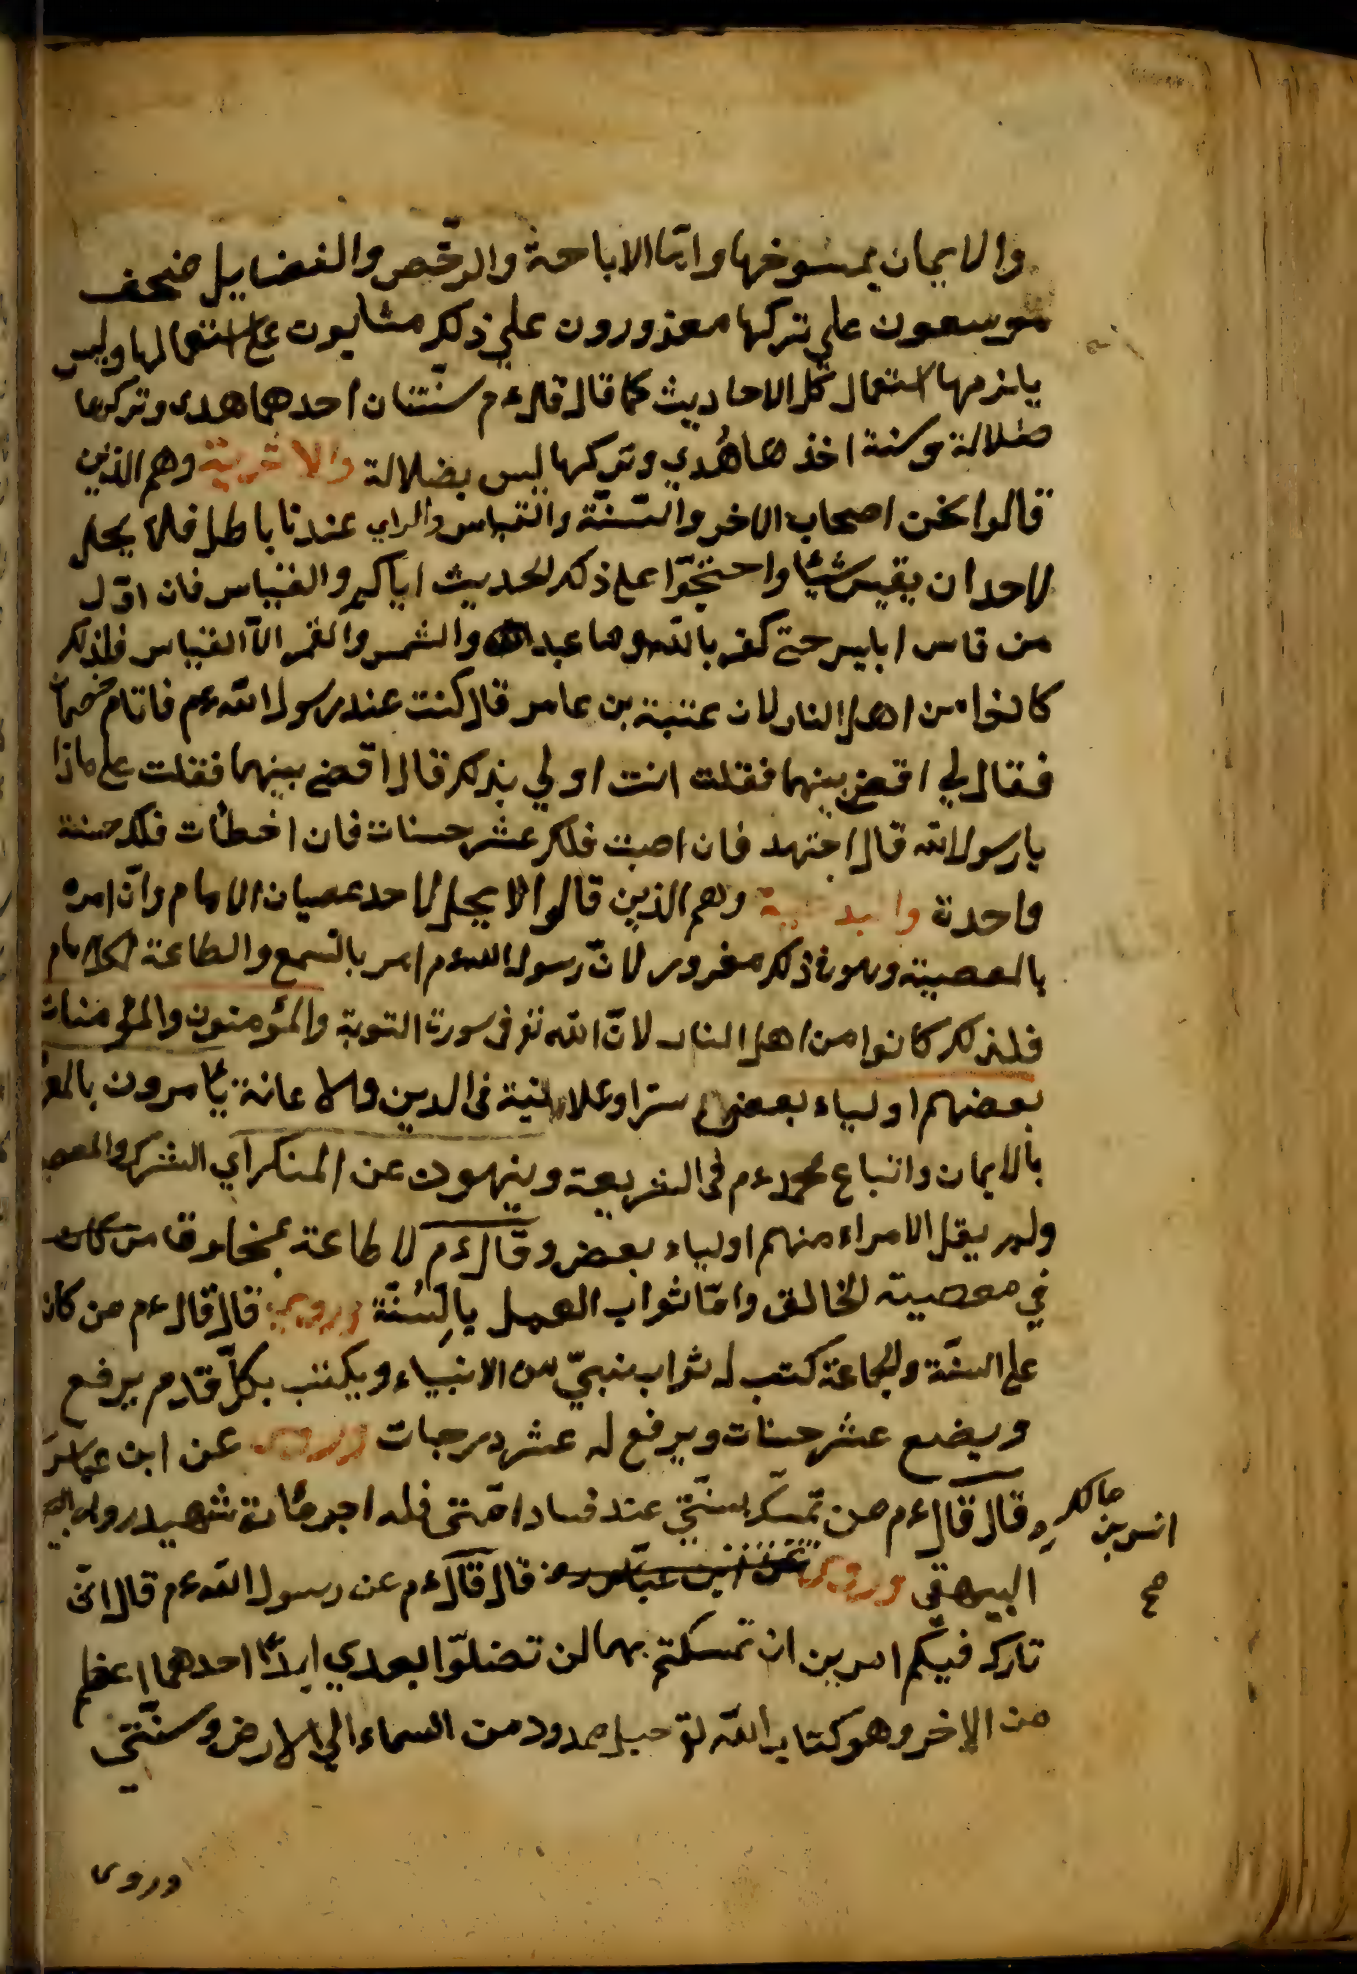 والايمان بمنسوخها واما الاباحة والرخص والفضايل فنحن
موسعون على تركها معذورون على ذلك مثابون على استعمالها وليس
يلزمها استعمال كل الاحاديث كما قال قال ءم سنتان احدهما هدى وتركها
ضلالة وسنة اخذها هدي وتركها ليس بضلالة والاثرية وهم الذين
قالوا نحن اصحاب الاخر والسنة والقياس والراي عندنا باطل فلا يحل
لاحد ان يقيس شيئا واحتجوا على ذلك لحديث اياكم والقياس فان اول
من قاس ابليس حتى كفر بالله وما عبد والشمس والقمر الا القياس فلذلك
كانوا من اهل النار لان عتبة بن عامر قال كنت عند رسول الله ءم فاتاه خصمان
فقال لي اقض بينهما فقلت انت اولي بذلك قال اقض بينهما فقلت على ماذا
يا رسول الله قال اجتهد فان اصبت فلك عشر حسنات فان اخطأت فلك حسنة
واحدة والبدعية وهم الذين قالوا لا يحل لاحد عصيان الامام وان امره
بالمعصية وهو في ذلك مغرور لان رسول الله ءم امر بالسمع والطاعة للامام
فلذلك كانوا من اهل النار لان الله تع في سورة التوبة والمؤمنون والمؤمنات
بعضهم اولياء بعض سرا وعلانية في الدين والاعانة يأمرون بالمعر
بالايمان واتباع محمد ءم في الشريعة وينهون عن المنكر اي الشرك والمعص
ولم يقل الامراء منهم اولياء بعض وقال ءم لا طاعة بمخلوق من كان
في معصية الخالق واما ثواب العمل بالسنة وروي قال قال ءم من كان
على السنة والجماعة كتب له ثواب نبي من الانبياء ويكتب بكل قدم يرفع
ويضع عشر حسنات ويرفع له عشر درجات وروى عن ابن عباس
قال قال ءم من تمسك بسنتي عند فساد امتى فله اجر مائة شهيد رواه
انس بن مالك
صح
البيهقى وروى عن ابن عباس رض قال قال ءم عن رسول الله ءم قال انى
تارك فيكم امرين ان تمسكتم بهما لن تضلوا بعدي ابدا احدهما اعظم
من الاخر وهو كتاب الله تع حبل ممدود من السماء الي الارض وسنتي
وروى